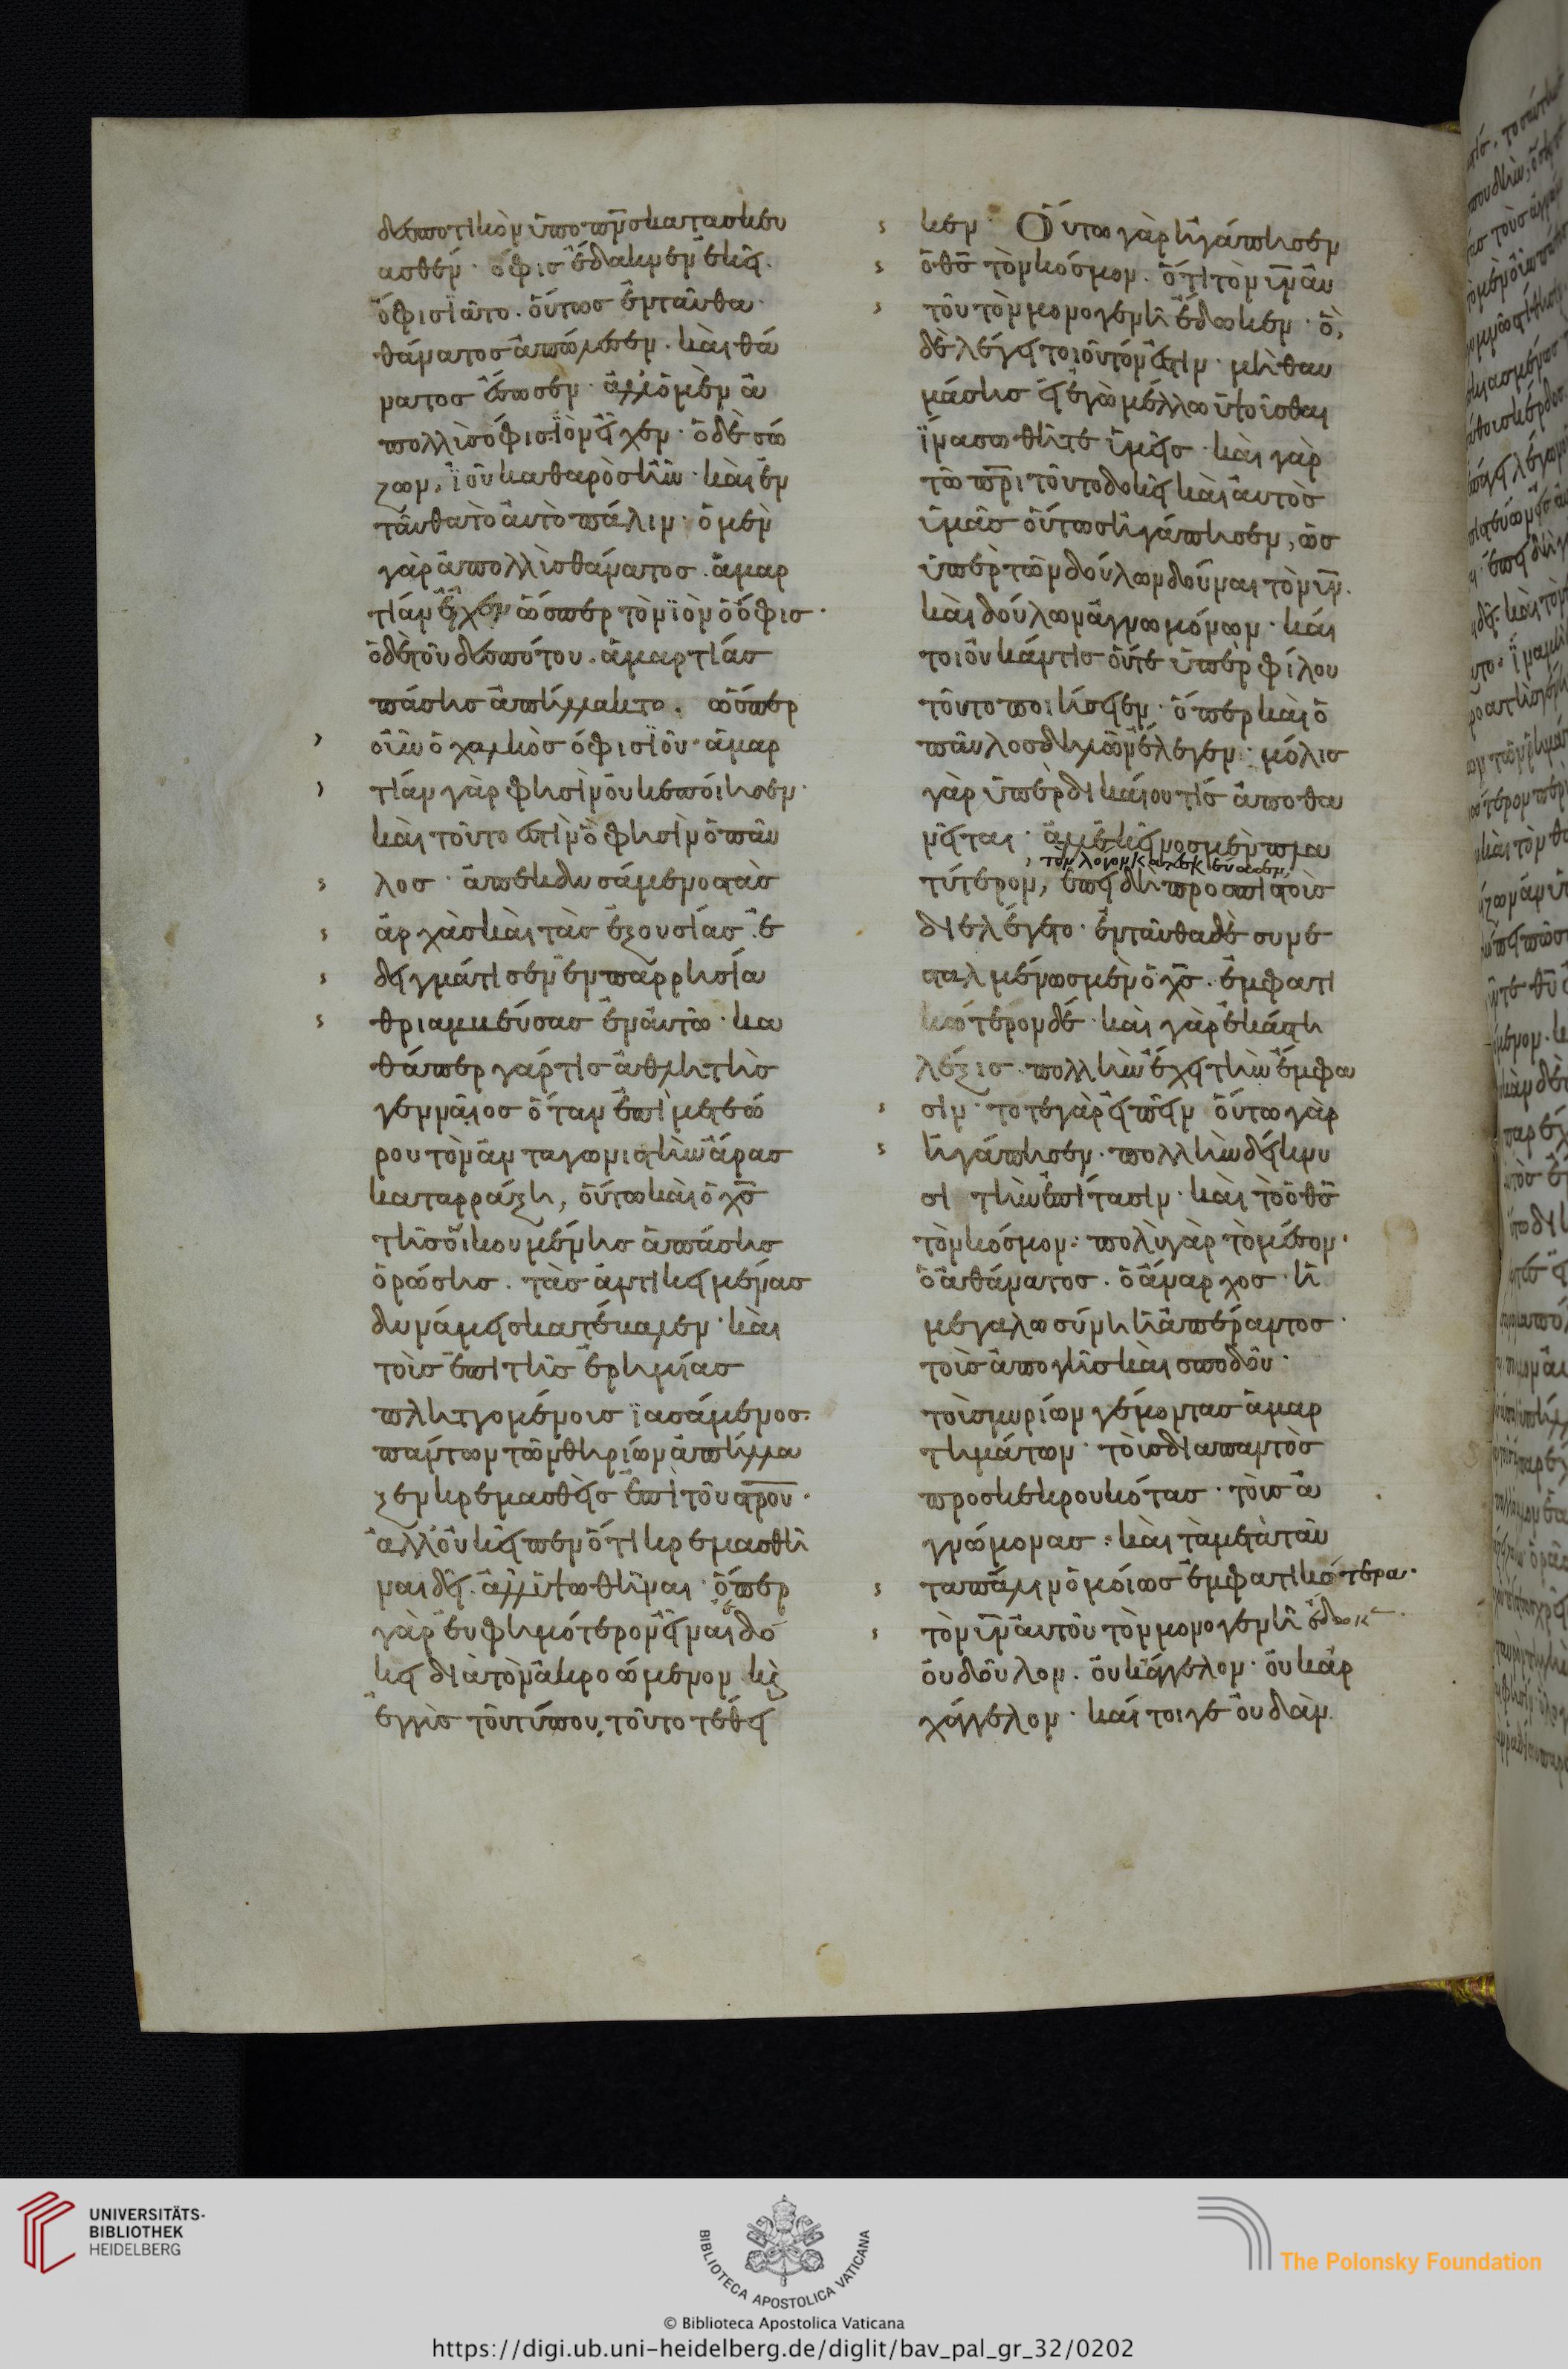 δεσποτικὸν ὑπο τῆς κατασκευ
ασθέν · ὄφις ἔδακνεν ἐκεῖ.
ὄφις ἰᾶτο · οὕτως ἐνταῦθα ·
θάνατος ἀπώλεσεν · καὶ θά
νατος ἔσωσεν · ἀλλ' ὁ μὲν ἀ
πολλὺς ὄφις ἰὸν εἶχεν · ὁ δὲ σώ
ζων, ἰοῦ καθαρὸς ἦν · καὶ ἐν
ταῦθα τὸ αὐτὸ πάλιν · ὁ μὲν
γὰρ ἀπολλὺς θάνατος · ἁμαρ
τίαν εἶχεν ὥσπερ τὸν ἰὸν ὁ ὄφις ·
ὁ δὲ τοῦ δεσπότου · ἁμαρτίας
πάσης ἀπήλλακτο · ὥσπερ
οὖν ὁ χαλκὸς ὄφις ἰοῦ · ἁμαρ
τίαν γὰρ φησὶν οὐκ ἐποίησεν ·
καὶ τοῦτο ἐστὶν ὃ φησὶν ὁ παῦ
λος · ἀπεκδυσάμενος τὰς
ἀρχὰς καὶ τὰς ἐξουσίας · ἐ
δειγμάτισεν ἐν παρρησία
θριαμβεύσας ἐν αὐτῶ · κα
θάπερ γάρ τις ἀθλητὴς
γενναῖος ὅταν ἐπὶ μετεώ
ρου τὸν ἀνταγωνιστὴν ἄρας
καταρράξη, οὕτω καὶ ὁ χς
τῆς οἰκουμένης ἁπάσης
ὁρώσης · τὰς ἀντικειμένας
δυνάμεις κατέβαλεν · καὶ
τοὺς ἐπὶ τῆς ἐρημίας
πληττομένους ἰασάμενος ·
πάντων τῶν θηρίων ἀπήλλα
ξεν κρεμασθεὶς ἐπὶ τοῦ στρου ·
ἀλλ' οὐκ εἶπεν ὅτι κρεμασθῆ
ναι δεῖ · ἀλλ' ὑψωθῆναι · ὅπερ
γὰρ εὐφημότερον εἶναι ἐδό
κει διὰ τὸν ἀκροώμενον κὶ
ἐγγὺς τοῦ τύπου, τοῦτο τέθει
κεν · Οὕτω γὰρ ἠγάπησεν
ὁ θς τὸν κόσμον · ὅτι τὸν υν αὐ
τοῦ τὸν μονογενῆ ἔδωκεν · ὃ,
δὲ λέγει τοιοῦτόν ἐστιν · μὴ θαυ
μάσης εἰ ἐγὼ μέλλω ὑψοῦσθαι
ἵνα σωθῆτε ὑμεῖς · καὶ γὰρ
τῶ πρι τοῦτο δοκεῖ καὶ αὐτὸς
ὑμᾶς οὕτως ἠγάπησεν, ὡς
ὑπὲρ τῶν δούλων δοῦναι τὸν υν.
καὶ δούλων ἀγνωμόνων · καί
τοι οὐκ ἄν τις οὔτε ὑπὲρ φίλου
τοῦτο ποιήσειεν · ὅπερ καὶ ὁ
παῦλος δηλῶν ἔλεγεν · μόλις
γὰρ ὑπὲρ δικαίου τίς ἀποθα
νεῖται · ἀλλ' ἐκεῖνος μὲν πλα
τὸν λόγον κατεσκεύασεν,
τύτερον, ἐπειδὴ πρὸς πιστοὺς
διελέγετο · ἐνταῦθα δὲ συνε
σταλμένως μὲν ὁ χς · ἐμφατι
κώτερον δέ · καὶ γὰρ ἑκάστη
λέξις πολλὴν ἔχει τὴν ἔμφα
σιν · τό τε γὰρ εἰπεῖν οὕτω γὰρ
ἠγάπησεν · πολλὴν δείκνυ
σι τὴν ἐπίτασιν · καὶ τὸ ὁ θς
τὸν κόσμον · πολὺ γὰρ τὸ μέσον ·
ὁ ἀθάνατος · ὁ ἄναρχος · ἡ
μεγαλωσύνη ἡ ἀπέραντος ·
τοὺς ἀπὸ γῆς καὶ σποδοῦ ·
τοὺς μυρίων γέμοντας ἁμαρ
τημάτων · τοὺς διαπαντὸς
προσκεκρουκότας · τοὺς ἀ
γνώμονας · καὶ τὰ μετὰ ταῦ
τα πάλιν ὁμοίως ἐμφατικώτερα ·
τὸν υν αὐτοῦ τὸν μονογενῆ ἔδωκ
οὐ δοῦλον · οὐκ ἄγγελον · οὐκ ἀρ
χάγγελον · καίτοιγε οὐδ' ἂν
UNIVERSITÄTS-
BIBLIOTHEK
HEIDELBERG
BIBLIOTECA APOSTOLICA VATICANA
The Polonsky Foundation
© Biblioteca Apostolica Vaticana
https://digi.ub.uni-heidelberg.de/diglit/bav_pal_gr_32/0202